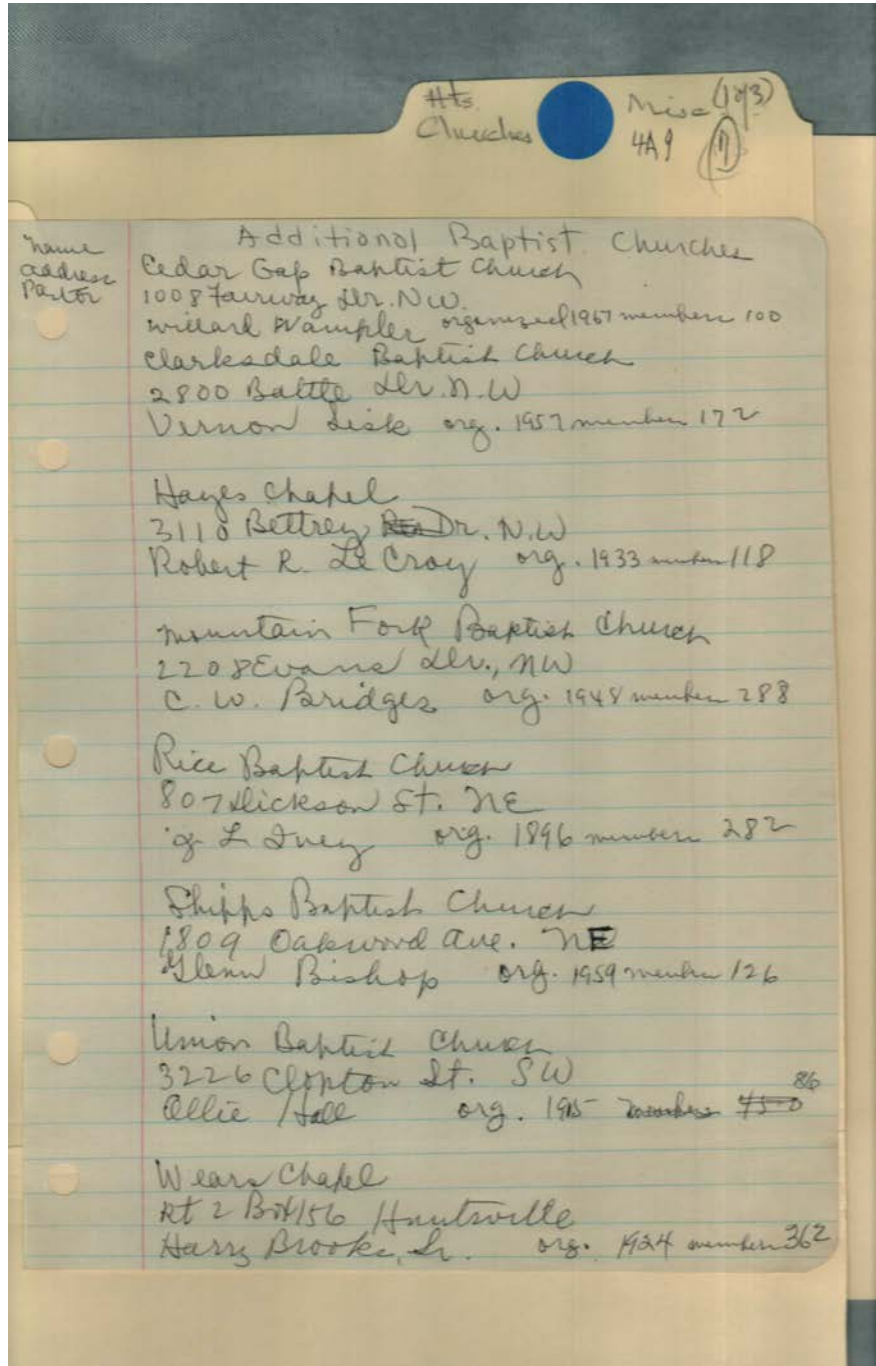 Hts. Misc (1of3)
Churches 4A9 (7)
Additional Baptist Churches
name
address
Pastor
Cedar Gap Baptist Church
1008 Fairway Dr. N.W.
Willard Wampler organized 1967 members 100
Clarksdale Baptist Church
2800 Battle Dr. N.W
Vernon Lisk org. 1957 members 172
Hayes Chapel
3110 Bettrey Dr. N.W
Robert R. LeCroy org. 1933 members 118
Mountain Fork Baptist Church
2208 Evans Dr., NW
C. W. Bridges org. 1948 members 288
Rice Baptist Church
807 Dickson St. NE
L Ivey org. 1896 members 282
Shipps Baptist Church
1809 Oakwood Ave. NE
Glenn Bishop org. 1959 members 126
Union Baptist Church
3226 Clopton St. SW
Ollie Hall org. 1915 members 450 86
Wears Chapel
Rt 2 Box 156 Huntsville
Harry Brooks, Sr. org. 1924 members 362